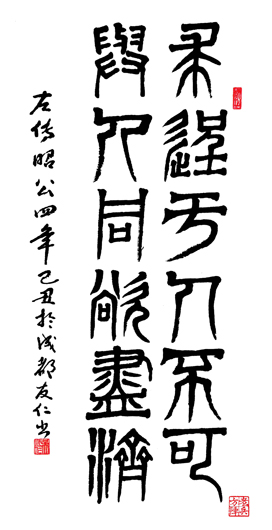 求逞于人不可
與人同欲盡濟
左傳昭公四年己丑於成都友仁書